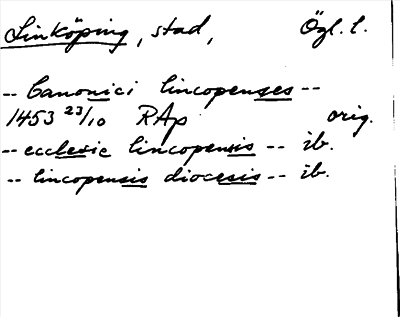 Linköping, stad, Ögl. l.
-- Canonici lincopenses --
1453 23/10 RAp orig.
-- ecclesie lincopensis -- ib.
-- lincopensis diocesis -- ib.